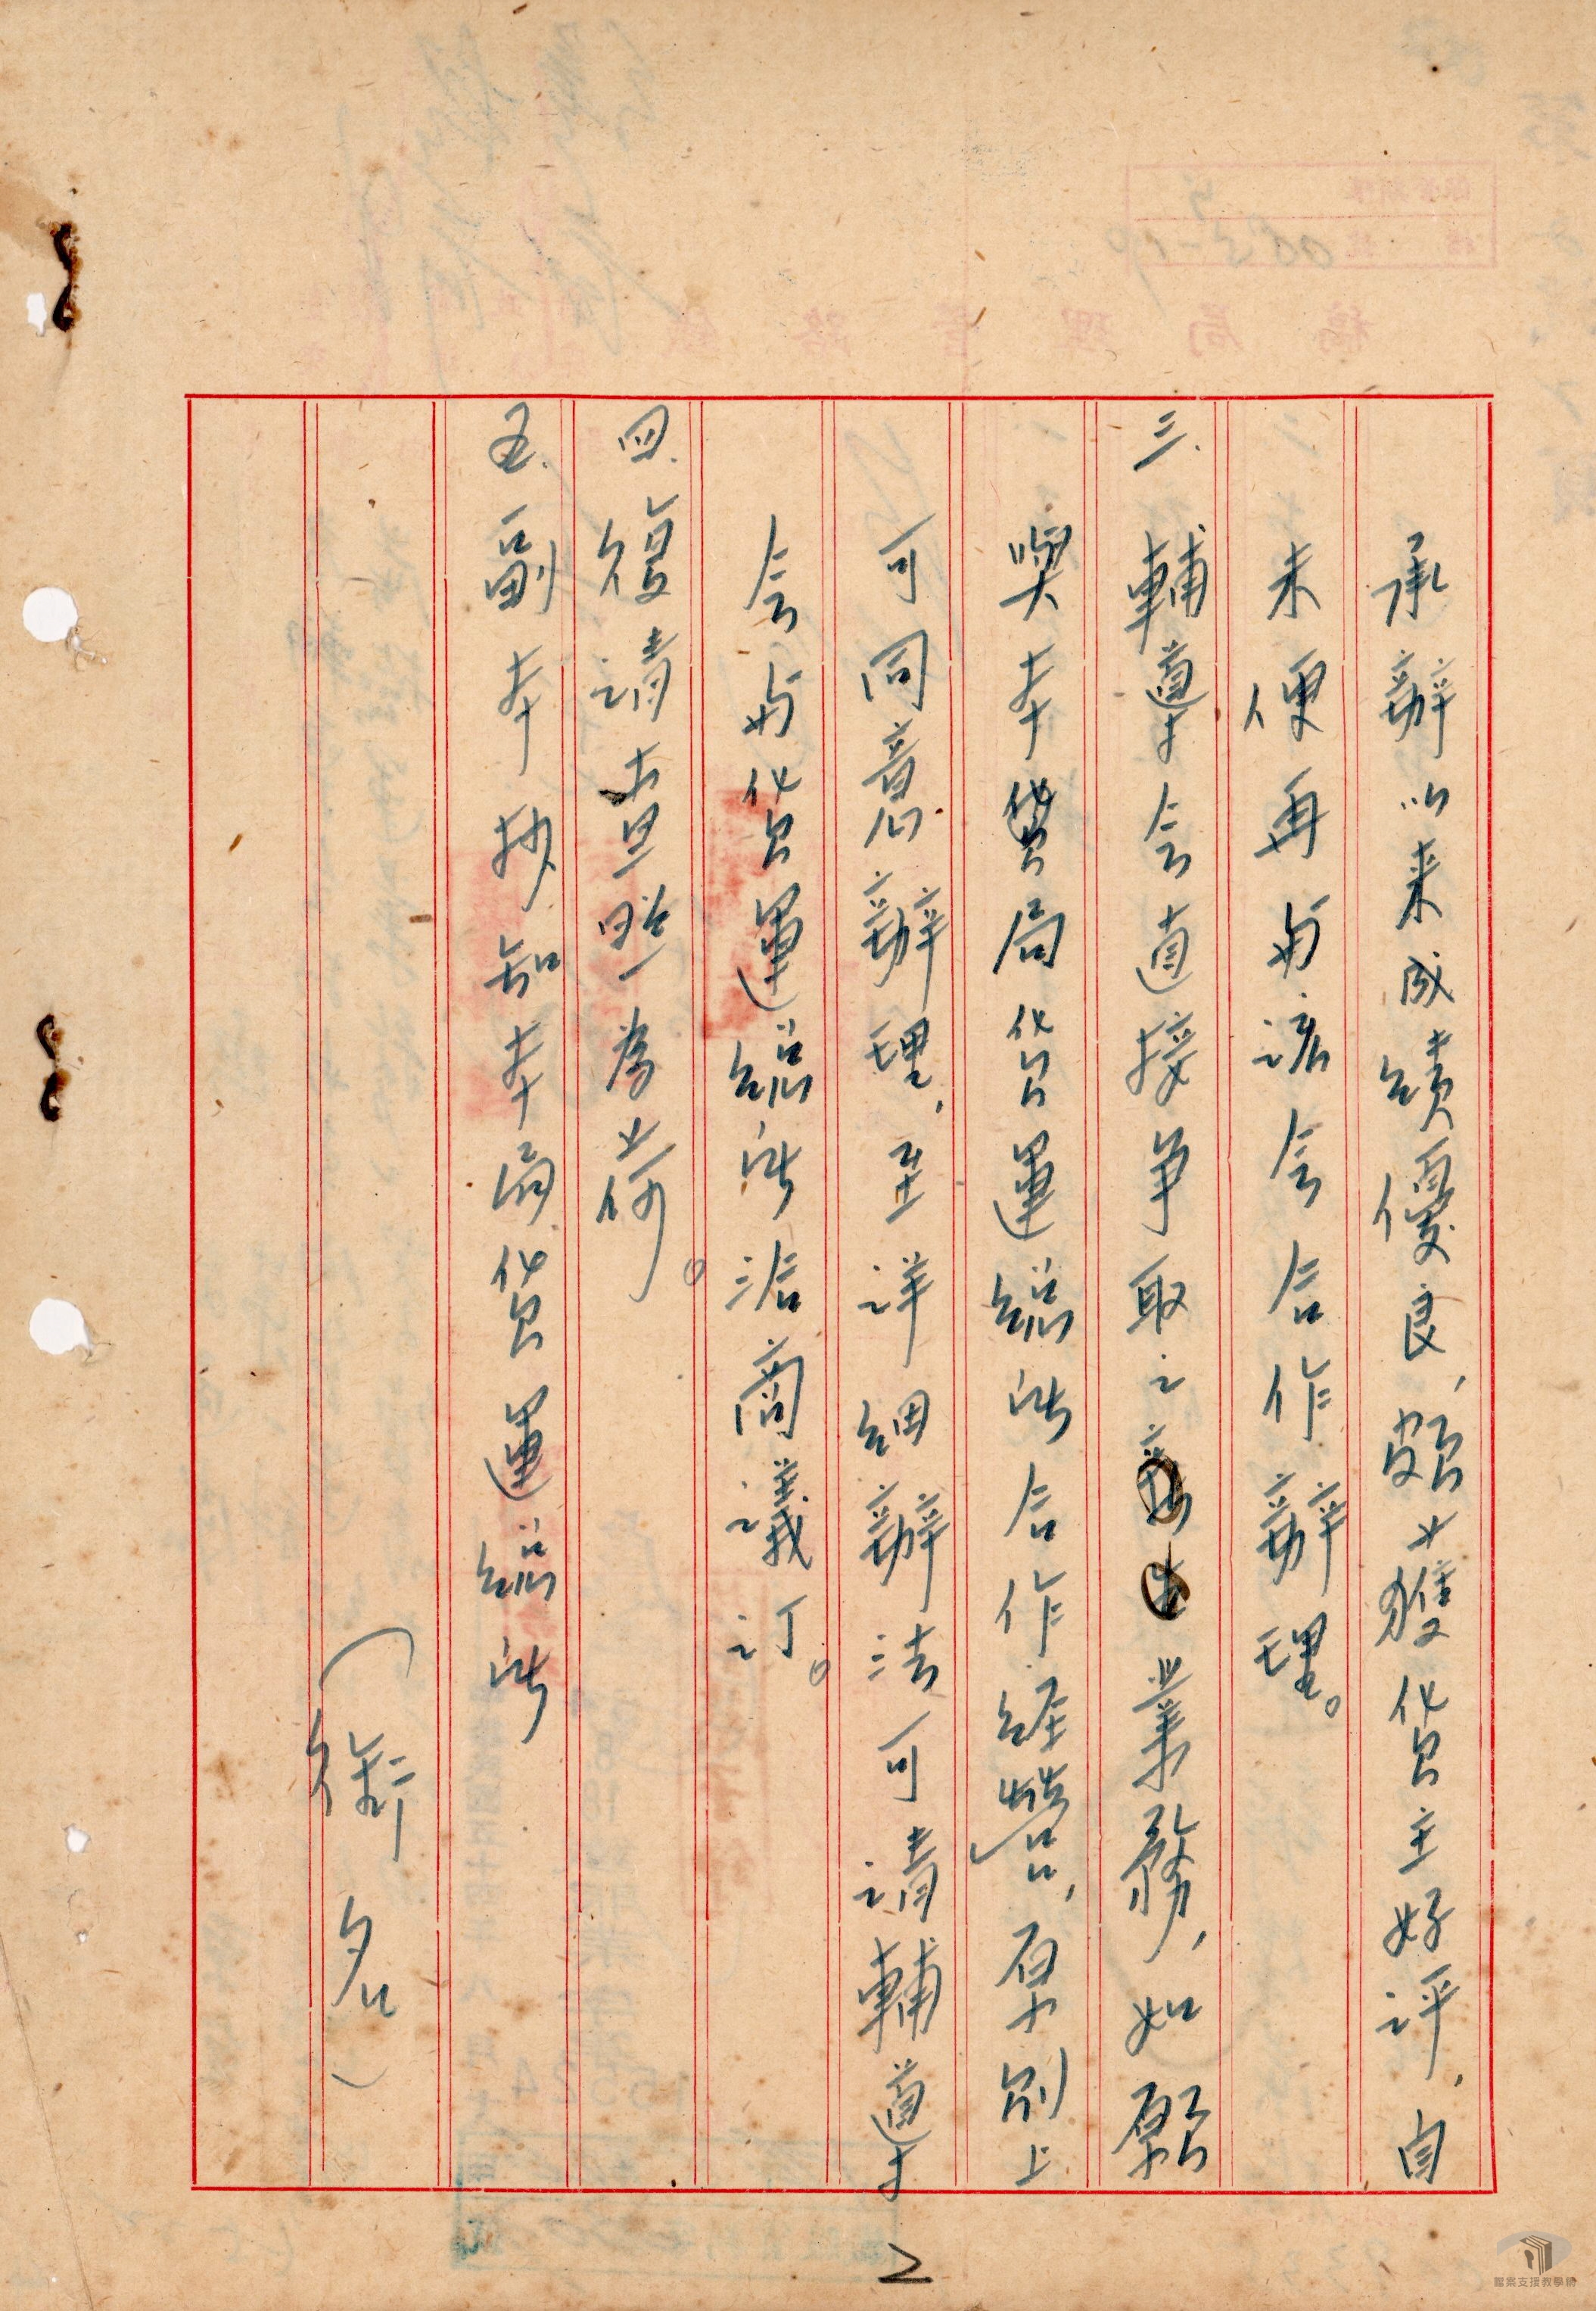 承辦以來成績優良，頗獲貨主好評，自
未便再與該會合作辦理。
三．輔導會直接爭取之業務，如願
與本局貨運總所合作經營，原則上
可同意辦理，至詳細辦法可請輔導
會與貨運總所洽商議訂。
四．復請查照為荷。
五．副本抄知本局貨運總所
（銜名）
2
檔案支援教學網